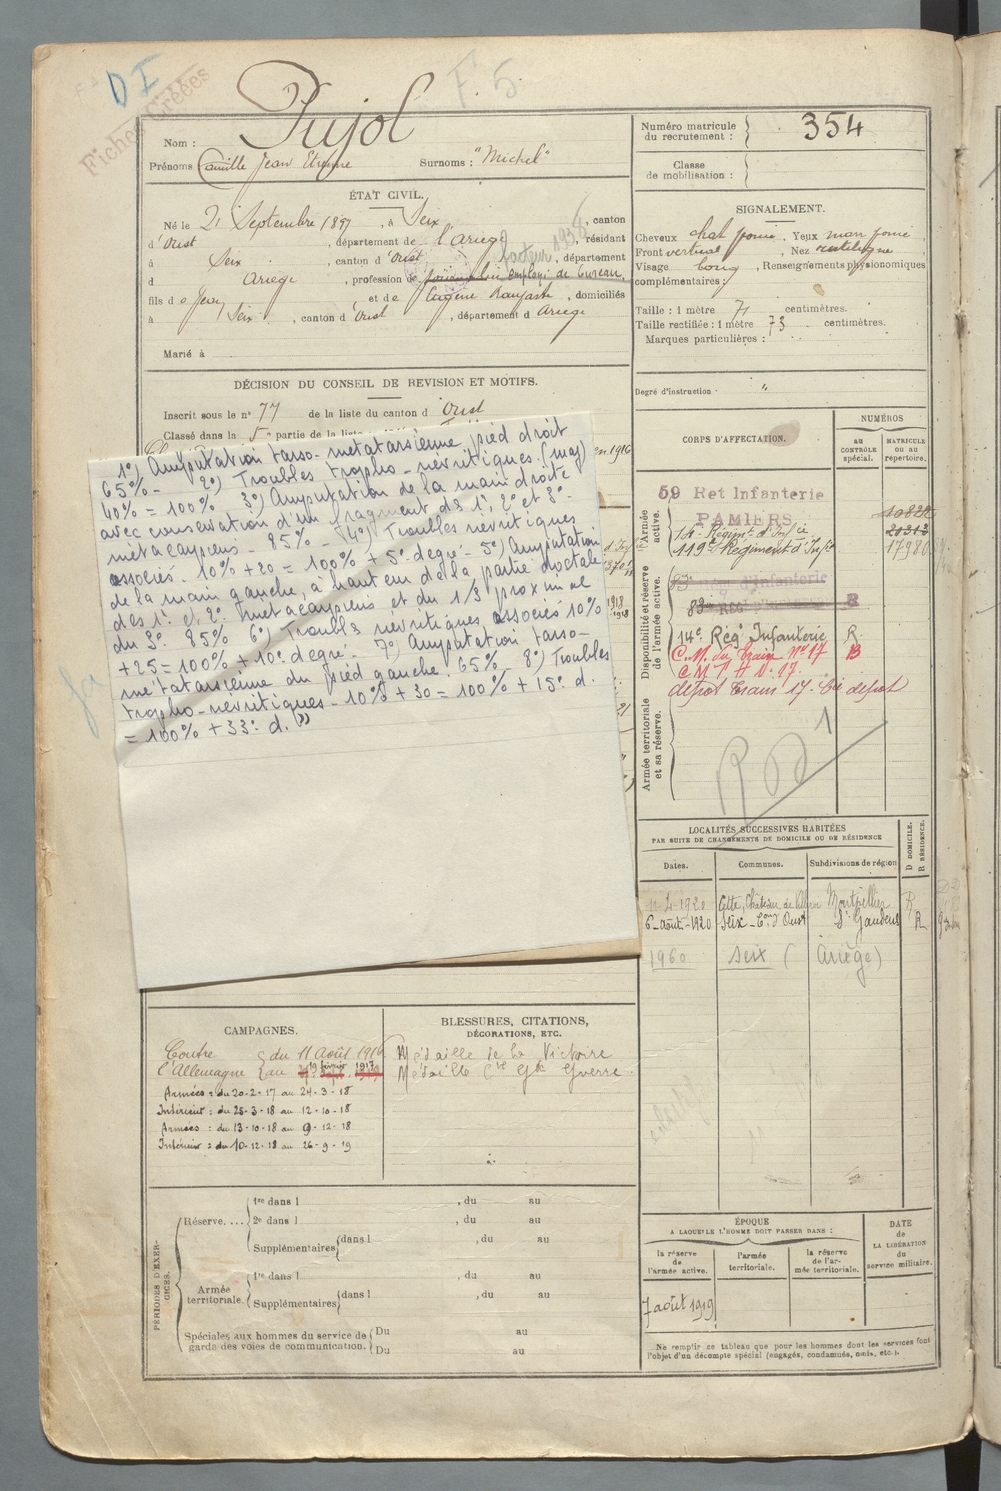 D I
Fiches Créées
F 5
Pujol
Nom :
Prénoms Camille Jean Etienne Surnoms : "Michel"
Numéro matricule du recrutement : 354
Classe de mobilisation :
ÉTAT CIVIL.
Né le 21 Septembre 1897, à Seix, canton
d'Oust, département de l'Ariège, résidant
à Seix, canton d'Oust, département
facteur 1938
d Ariège, profession de employé de bureau
fils de Jean et de Eugénie, domiciliés
à Seix, canton d'Oust, département d Ariège
Marié à
SIGNALEMENT.
Cheveux chat foncé, Yeux marr foncé,
Front vertical, Nez rectiligne
Visage long, Renseignements physionomiques
complémentaires :
Taille : 1 mètre 71 centimètres.
Taille rectifiée : 1 mètre 73 centimètres.
Marques particulières :
Degré d'instruction : "
DÉCISION DU CONSEIL DE REVISION ET MOTIFS.
Inscrit sous le n° 77 de la liste du canton d'Oust
Classé dans la 5e partie de la liste
en 1916
1°) Amputation tarso-métatarsienne pied droit
65% - 2°) Troubles tropho-névritiques (maj)
40% = 100% 3°) Amputation de la main droite
avec conservation d'un fragment des 1°, 2° et 3°
métacarpiens - 85% - 4°) Troubles névritiques
associés - 10% + 20 = 100% + 5° degré - 5°) Amputation
de la main gauche, à hauteur de la partie
des 1° et 2° métacarpiens et du 1/3 proximal
du 3° 85% 6°) Troubles névritiques associés 10%
+ 25 = 100% + 10° degré - 7°) Amputation tarso-
métatarsienne du pied gauche. 65% - 8°) Troubles
tropho-névritiques - 10% + 30 = 100% + 15° d.
= 100% + 33° d. "
CORPS D'AFFECTATION.
NUMÉROS
AU CONTRÔLE spécial.
MATRICULE OU AU répertoire.
Armée active.
59 Ret Infanterie
PAMIERS
14e Régimt d'Infie
119e Régiment d'Infie
17980
Disponibilité et réserve de l'armée active.
83 d'Infanterie
83me REGt d'Infanterie R
14e Rég Infanterie R
C.M. du Train N° 17 B
C M T H N° 17
dépôt Trans 17. Cie dépôt
Armée territoriale et sa réserve.
1
LOCALITÉS SUCCESSIVES HABITÉES
PAR SUITE DE CHANGEMENTS DE DOMICILE OU DE RÉSIDENCE
D DOMICILE. R RÉSIDENCE.
Dates. Communes. Subdivisions de région
1920 Cette, Château de Montpellier R
6-août-1920 Seix - Con d'Oust St Gaudens R
1960 Seix ( Ariège )
CAMPAGNES.
Contre l'Allemagne du 11 Août 1916
au 19 février 1917
Armées : du 20-2-17 au 24-3-18
Intérieur : du 25-3-18 au 12-10-18
Armées : du 13-10-18 au 9-12-18
Intérieur : du 10-12-18 au 26-9-19
BLESSURES, CITATIONS,
DÉCORATIONS, ETC.
Médaille de la Victoire
Médaille Cve Gde Guerre
PÉRIODES D'EXERCICES.
Réserve....
1re dans l , du au
2e dans l , du au
Supplémentaires dans l , du au
Armée territoriale.
1re dans l , du au
Supplémentaires dans l , du au
Spéciales aux hommes du service de garde des voies de communication.
Du au
Du au
ÉPOQUE
A LAQUELLE L'HOMME DOIT PASSER DANS :
la réserve de l'armée active.
l'armée territoriale.
la réserve de l'armée territoriale.
DATE de LA LIBÉRATION du service militaire.
7 août 1919
Ne remplir ce tableau que pour les hommes dont les services font
l'objet d'un décompte spécial (engagés, condamnés, omis, etc.).